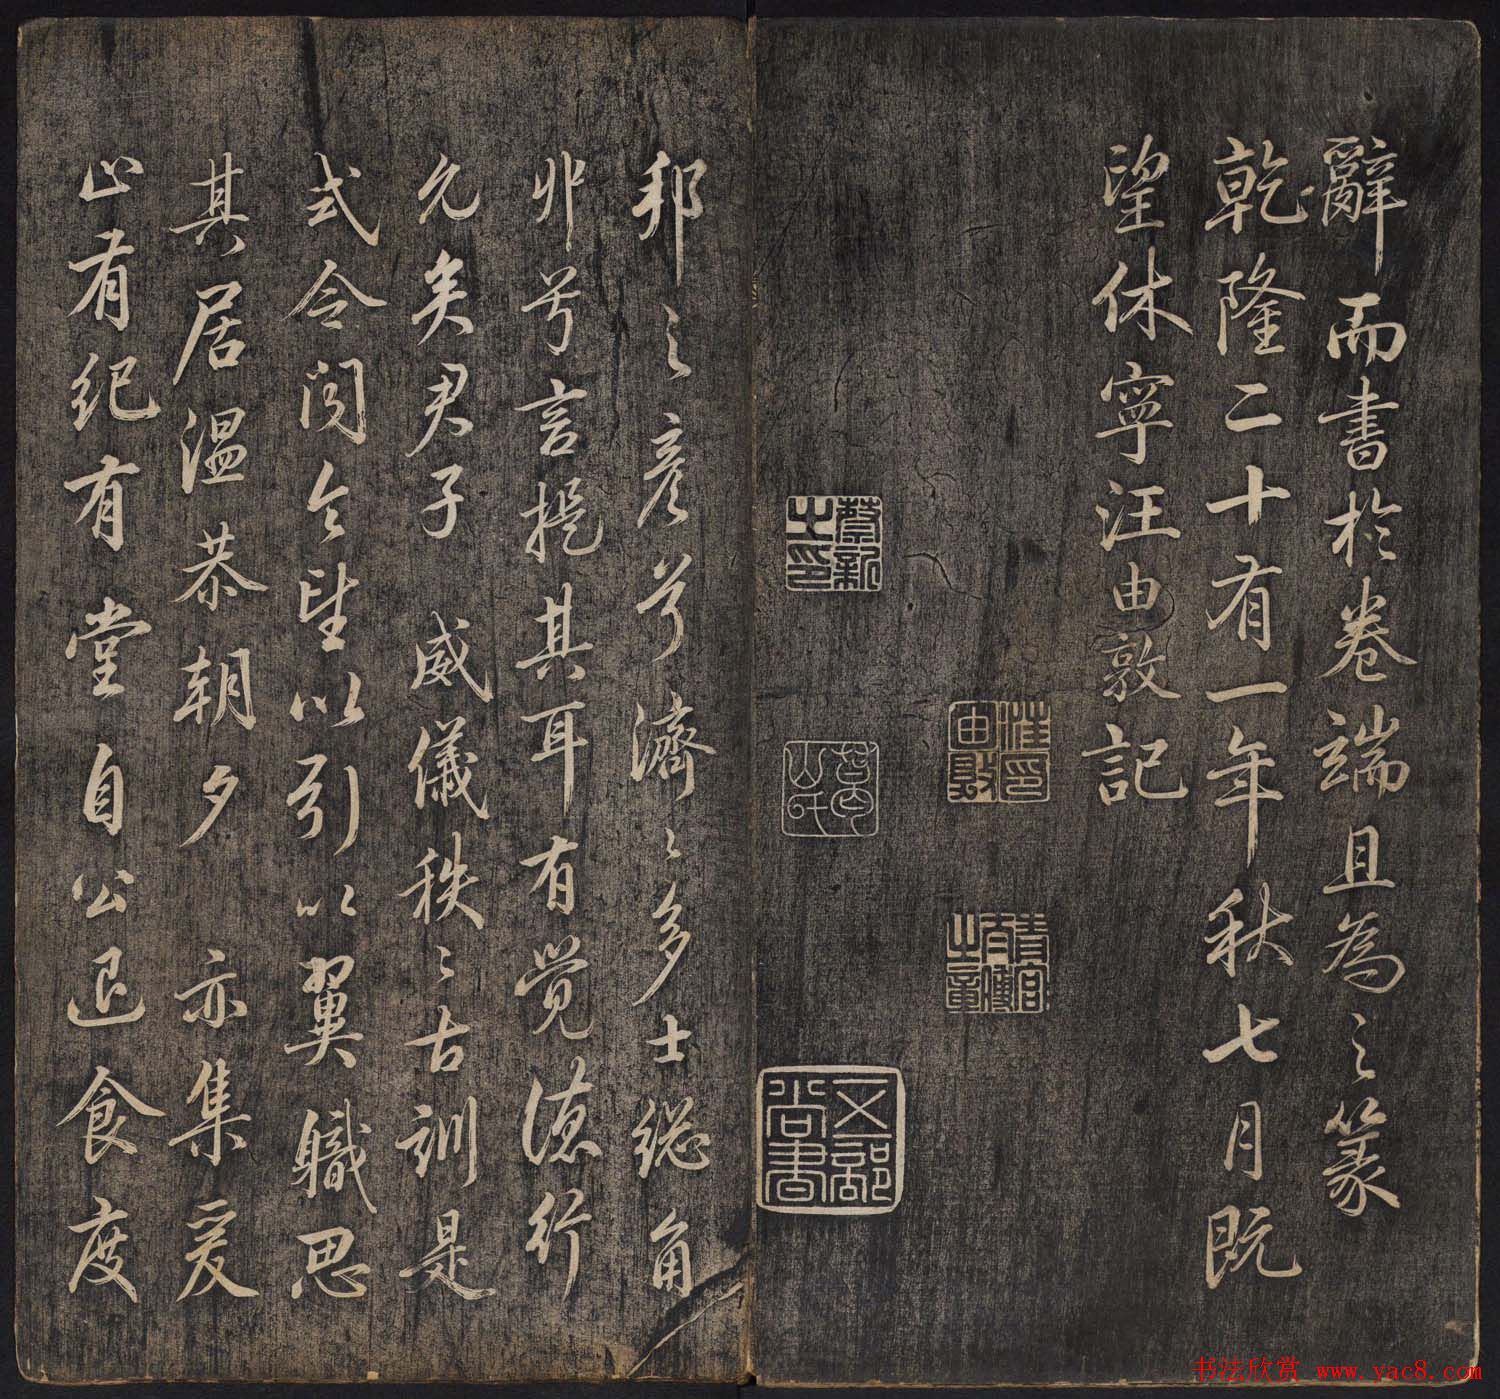 辭而書於卷端且為之篆
乾隆二十有一年秋七月既
望休寧汪由敦記
汪由敦印
青宮太傅之章
蔡新之印
葛山氏
五部尚書
邦之彥兮濟〻多士總角
丱兮言提其耳有覺德行
允矣君子威儀秩〻古訓是
式令聞令望以引以翼職思
其居溫恭朝夕亦集爰
止有紀有堂自公退食度
书法欣赏 www.yac8.com